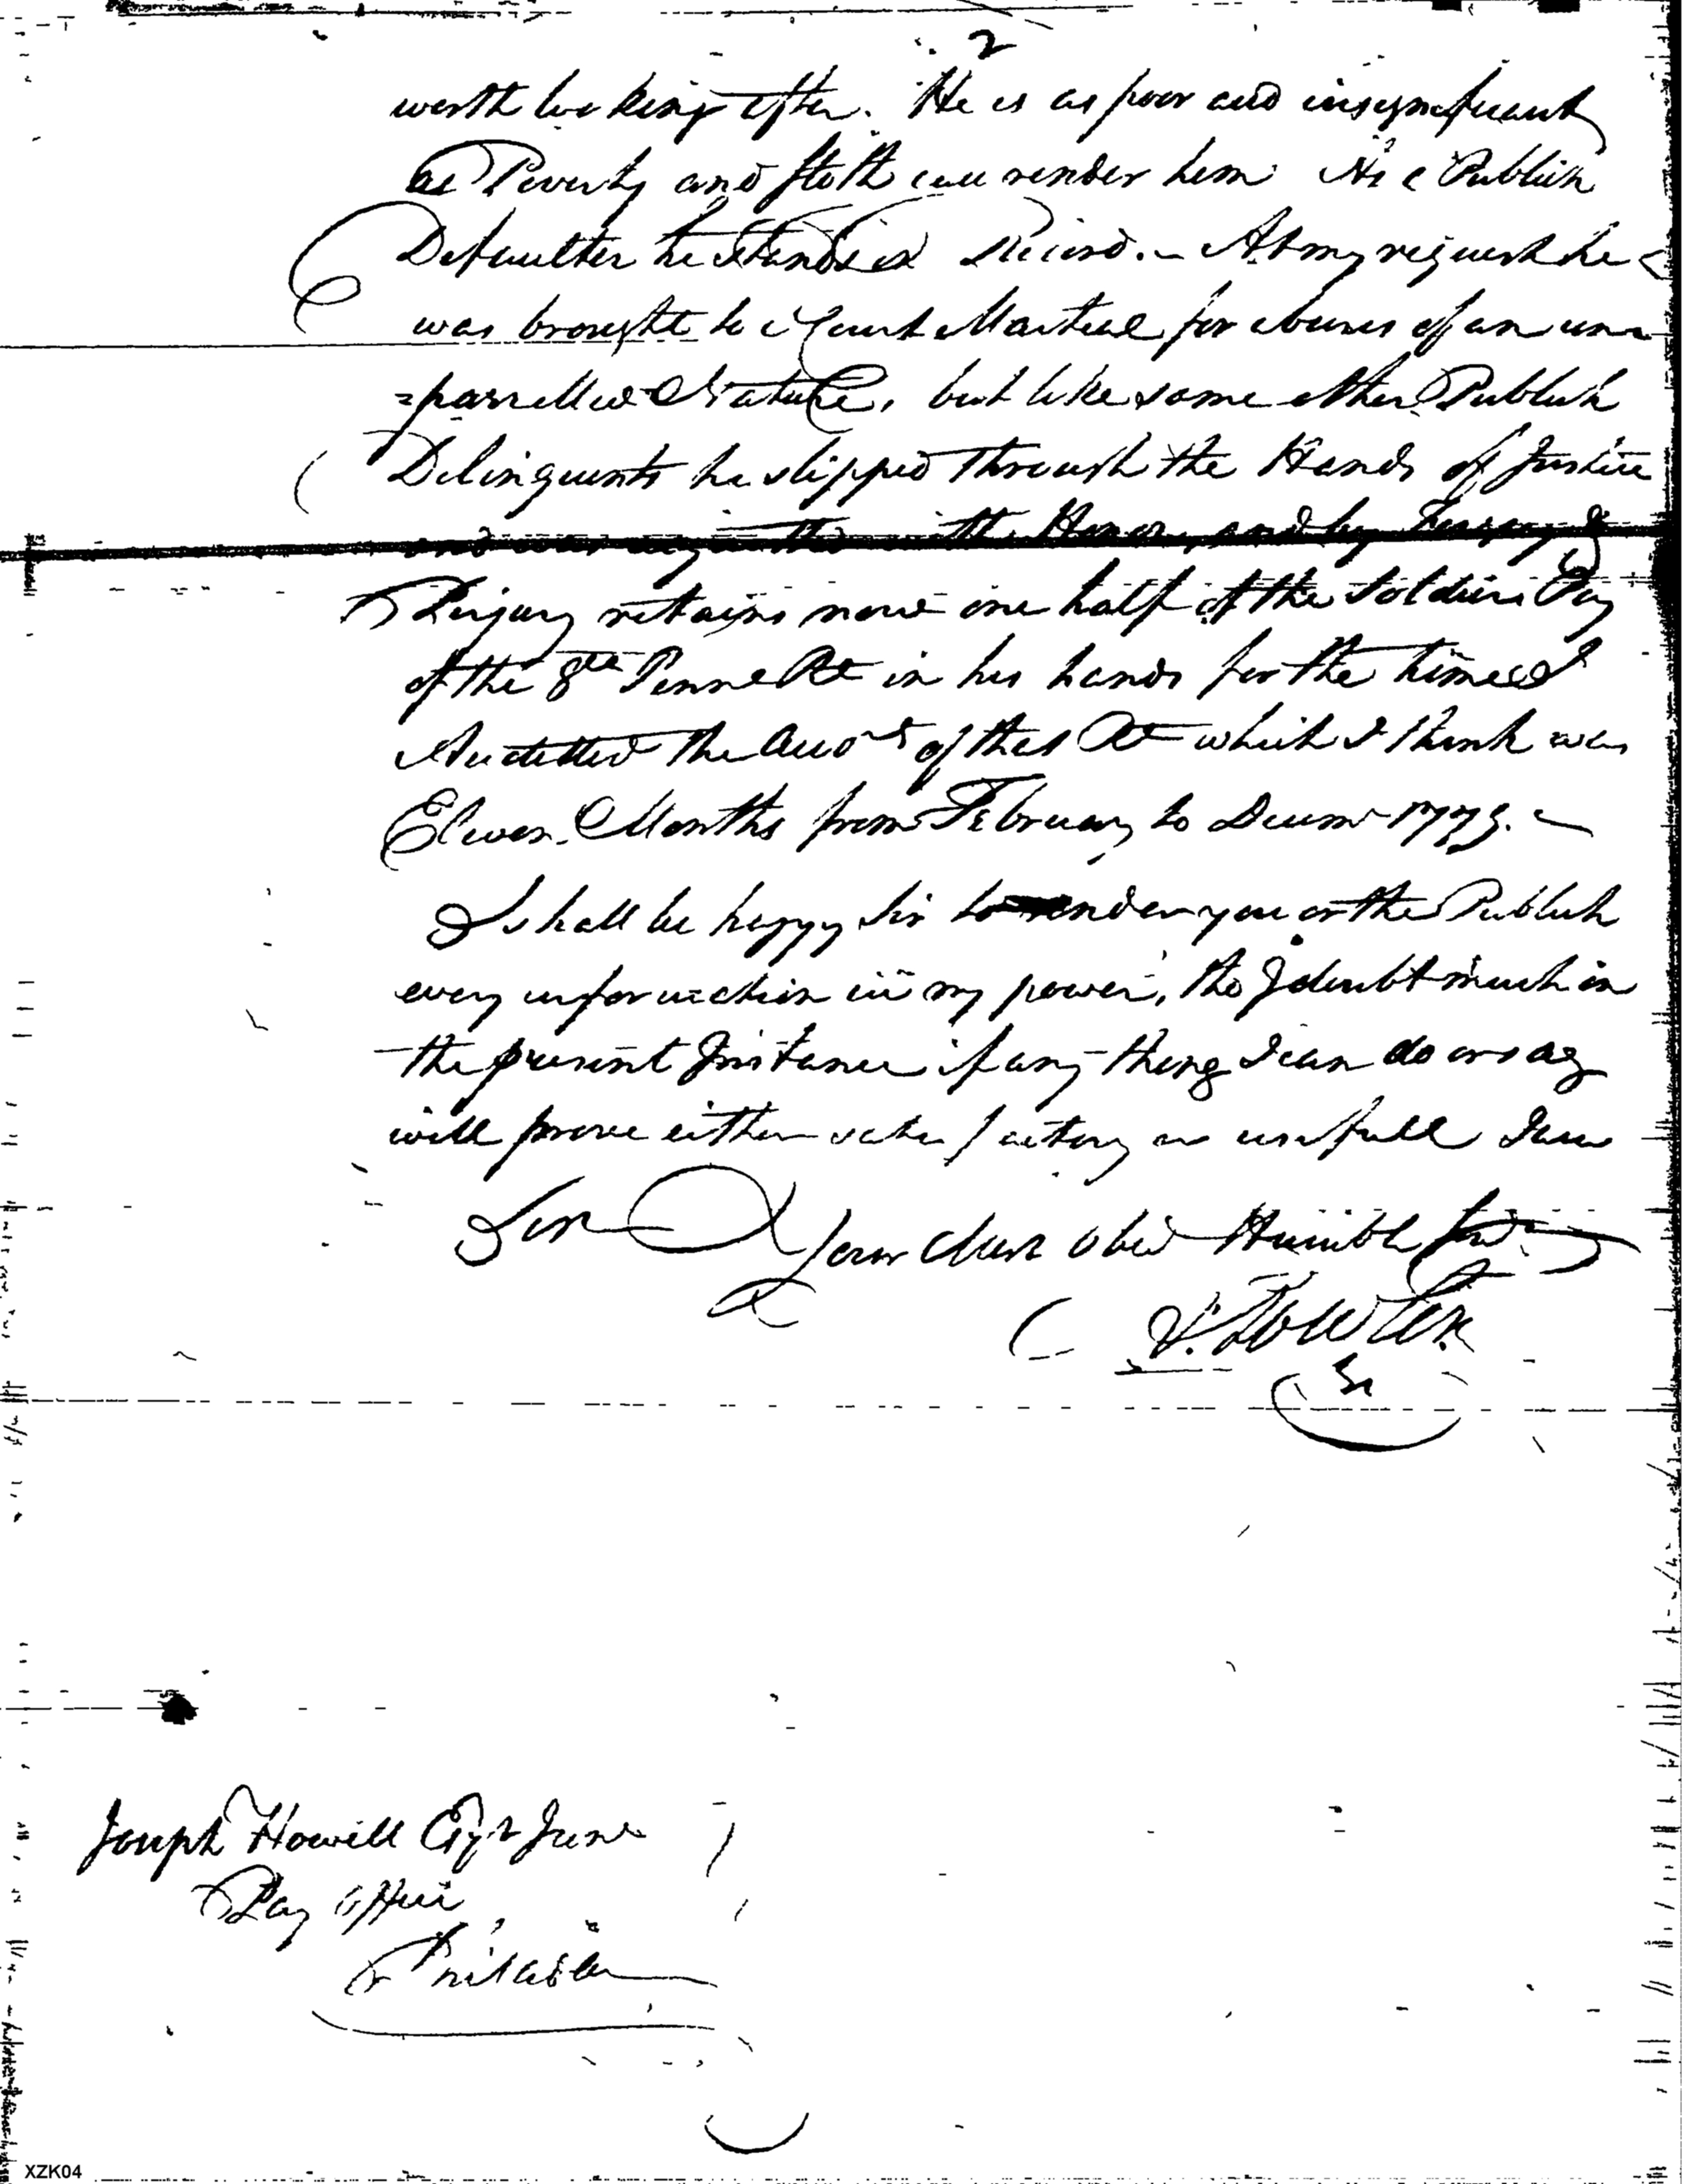 2
worth looking after. He is as poor and insignificant
as Poverty and Sloth can render him. As a Publick
Defaulter he stands on Record. - At my request he
was brought to a Court Martial for abuses of an un-
=parrelled Nature, but like some other Publick
Delinquents he slipped through the Hands of Justice
and was acquitted with Honor, and by
Perjury retains now one half of the Soldiers Pay
of the 8th Penna Rt in his hands for the time I
Audetted the Accots of that Rt which I think was
Eleven Months from February to Decemr 1779. -
I shall be happy Sir to render you or the Publick
every information in my power, tho I doubt much in
the present Instance if any thing I can do or say
will prove either satisfactory or usefull I am
Sir
Your Most Obed Humble Servt
A. Fowler
Joseph Howell Esqr Junr
Pay Office
Philada
XZK04